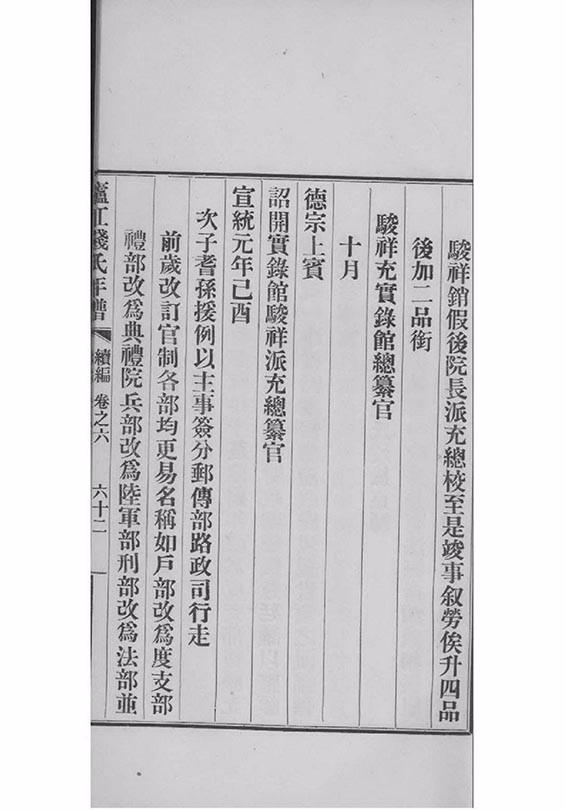 駿祥銷假後院長派充總校至是竣事叙勞俟升四品
後加二品銜
駿祥充實錄館總纂官
十月
德宗上賓
詔開實錄館駿祥派充總纂官
宣統元年己酉
次子耆孫援例以主事簽分郵傳部路政司行走
前歲改訂官制各部均更易名稱如戶部改爲度支部
禮部改爲典禮院兵部改爲陸軍部刑部改爲法部並
廬江錢氏年譜 續編 卷之六 六十二